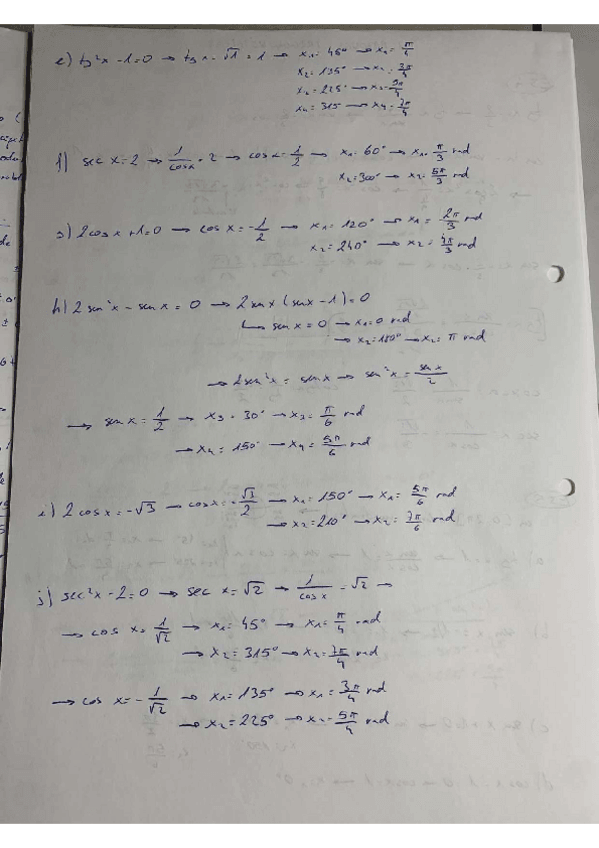 e) tg²x - 1 = 0 → tg x = √1 = 1 → x₁ = 45° → x₁ = π/4
x₂ = 135° → x₂ = 3π/4
x₃ = 225° → x₃ = 5π/4
x₄ = 315° → x₄ = 7π/4
f) sec x = 2 → 1/cos x = 2 → cos x = 1/2 → x₁ = 60° → x₁ = π/3 rad
x₂ = 300° → x₂ = 5π/3 rad
g) 2cos x + 1 = 0 → cos x = -1/2 → x₁ = 120° → x₁ = 2π/3 rad
x₂ = 240° → x₂ = 4π/3 rad
h) 2 sen²x - sen x = 0 → 2 sen x (sen x - 1) = 0
↳ sen x = 0 → x₁ = 0 rad
→ x₂ = 180° → x₂ = π rad
→ 2 sen²x = sen x → sen²x = sen x/2
→ sen x = 1/2 → x₃ = 30° → x₃ = π/6 rad
→ x₄ = 150° → x₄ = 5π/6 rad
i) 2 cos x = -√3 → cos x = -√3/2 → x₁ = 150° → x₁ = 5π/6 rad
→ x₂ = 210° → x₂ = 7π/6 rad
j) sec²x - 2 = 0 → sec x = √2 → 1/cos x = √2 →
→ cos x = 1/√2 → x₁ = 45° → x₁ = π/4 rad
→ x₂ = 315° → x₂ = 7π/4 rad
→ cos x = -1/√2 → x₁ = 135° → x₁ = 3π/4 rad
→ x₂ = 225° → x₂ = 5π/4 rad